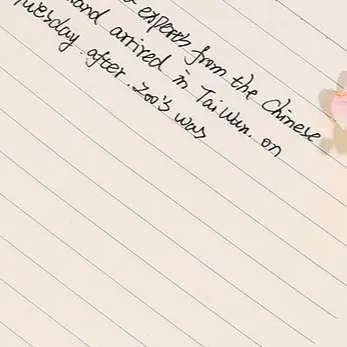 experts from the Chinese
and arrived in Taiwan. on
Tuesday after Zoo's was